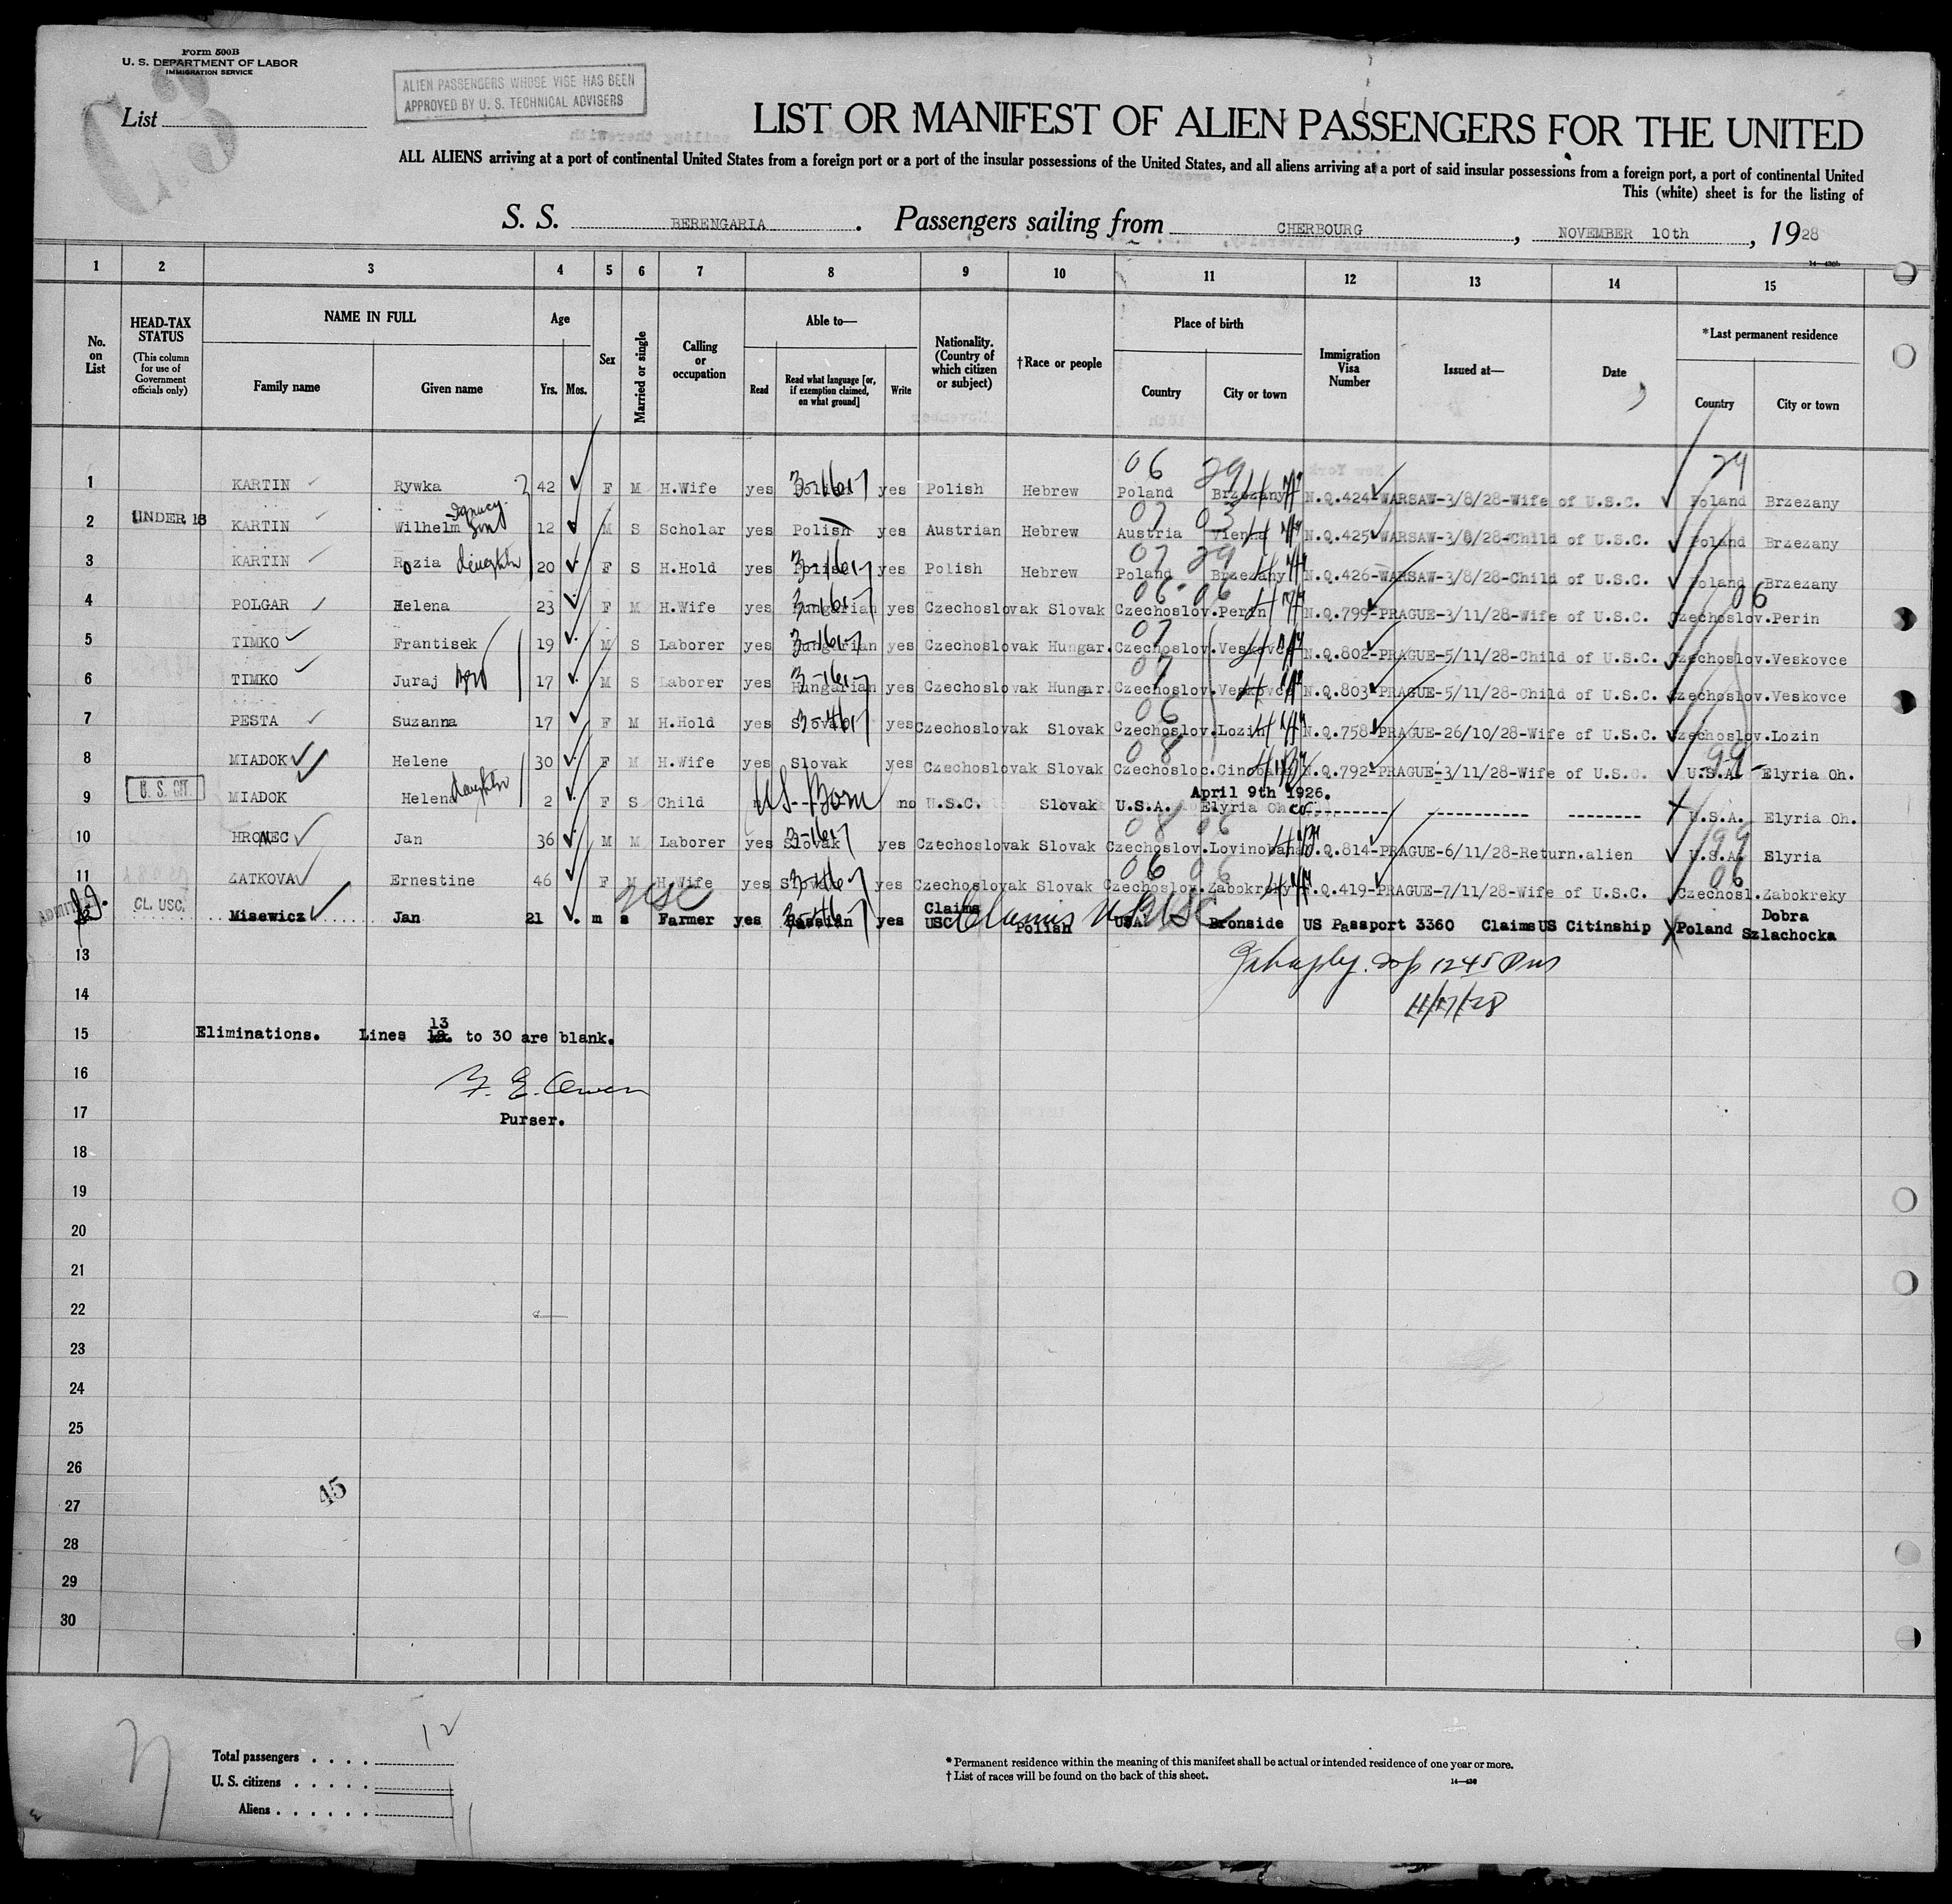 Form 500B
U. S. DEPARTMENT OF LABOR
IMMIGRATION SERVICE
ALIEN PASSENGERS WHOSE VISE HAS BEEN
APPROVED BY U. S. TECHNICAL ADVISERS
List
C3
LIST OR MANIFEST OF ALIEN PASSENGERS FOR THE UNITED
ALL ALIENS arriving at a port of continental United States from a foreign port or a port of the insular possessions of the United States, and all aliens arriving at a port of said insular possessions from a foreign port, a port of continental United
This (white) sheet is for the listing of
S. S. BERENGARIA. Passengers sailing from CHERBOURG, NOVEMBER 10th, 1928
1 2 3 4 5 6 7 8 9 10 11 12 13 14 15
No. on List
HEAD-TAX STATUS (This column for use of Government officials only)
NAME IN FULL Family name Given name
Age Yrs. Mos.
Sex
Married or single
Calling or occupation
Able to— Read Read what language [or, if exemption claimed, on what ground] Write
Nationality. (Country of which citizen or subject)
†Race or people
Place of birth Country City or town
Immigration Visa Number
Issued at—
Date
*Last permanent residence Country City or town
1 KARTIN Rywka 42 F M H.Wife yes Polish yes Polish Hebrew Poland Brzezany N.Q.424-WARSAW-3/8/28-Wife of U.S.C. Poland Brzezany
2 UNDER 18 KARTIN Wilhelm son 12 M S Scholar yes Polish yes Austrian Hebrew Austria Vienna N.Q.425-WARSAW-3/8/28-Child of U.S.C. Poland Brzezany
3 KARTIN Rozia daughter 20 F S H.Hold yes Polish yes Polish Hebrew Poland Brzezany N.Q.426-WARSAW-3/8/28-Child of U.S.C. Poland Brzezany
4 POLGAR Helena 23 F M H.Wife yes Hungarian yes Czechoslovak Slovak Czechoslov.Perin N.Q.799-PRAGUE-3/11/28-Wife of U.S.C. Czechoslov.Perin
5 TIMKO Frantisek 19 M S Laborer yes Hungarian yes Czechoslovak Hungar.Czechoslov.Veskovce N.Q.802-PRAGUE-5/11/28-Child of U.S.C. Czechoslov.Veskovce
6 TIMKO Juraj bro 17 M S Laborer yes Hungarian yes Czechoslovak Hungar.Czechoslov.Veskovce N.Q.803-PRAGUE-5/11/28-Child of U.S.C. Czechoslov.Veskovce
7 PESTA Suzanna 17 F M H.Hold yes Slovak yes Czechoslovak Slovak Czechoslov.Lozin N.Q.758-PRAGUE-26/10/28-Wife of U.S.C. Czechoslov.Lozin
8 MIADOK Helene 30 F M H.Wife yes Slovak yes Czechoslovak Slovak Czechosloc.Cinobana N.Q.792-PRAGUE-3/11/28-Wife of U.S.C. U.S.A. Elyria Oh.
April 9th 1926.
9 U. S. CIT. MIADOK Helena daughter 2 F S Child US-Born no U.S.C. Slovak U.S.A. Elyria Oh co. U.S.A. Elyria Oh.
10 HRONEC Jan 36 M M Laborer yes Slovak yes Czechoslovak Slovak Czechoslov.Lovinobana N.Q.814-PRAGUE-6/11/28-Return.alien U.S.A. Elyria
11 ZATKOVA Ernestine 46 F M H.Wife yes Slovak yes Czechoslovak Slovak Czechoslov.Zabokreky N.Q.419-PRAGUE-7/11/28-Wife of U.S.C. Czechosl.Zabokreky
ADMITTED CL. USC. Misewicz Jan 21 m s Farmer yes Russian yes Claims USC Claims USC Polish USA Bronside US Passport 3360 Claims US Citinship Poland Dobra Szlachocka
13
14 11/17/28
15 Eliminations. Lines 13 to 30 are blank.
16 F. E. Owen
17 Purser.
18
19
20
21
22
23
24
25
26
27 45
28
29
30
Total passengers . . . . 12
U. S. citizens . . . . .
Aliens . . . . . . 11
* Permanent residence within the meaning of this manifest shall be actual or intended residence of one year or more.
† List of races will be found on the back of this sheet.
14—436